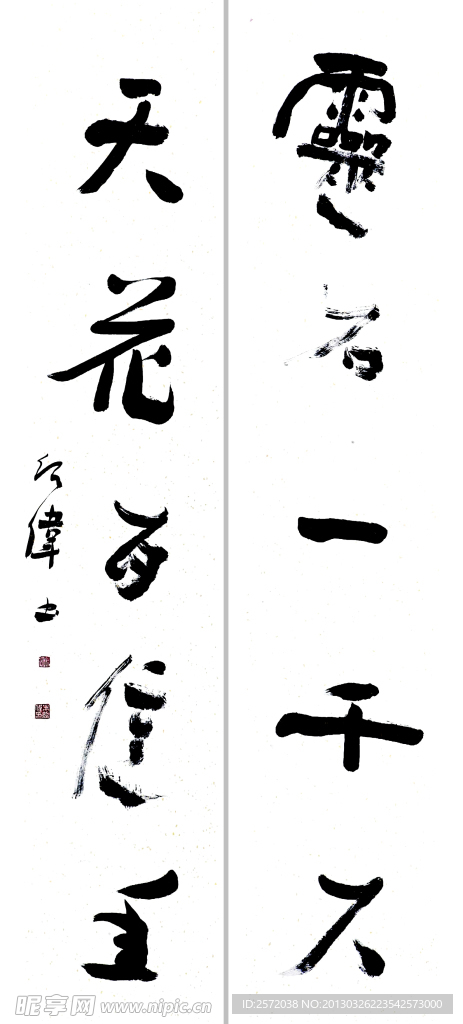 靈石一千尺
天花百億重
偉书
昵享网 www.nipic.cn
ID:2572038 NO:20130326223542573000